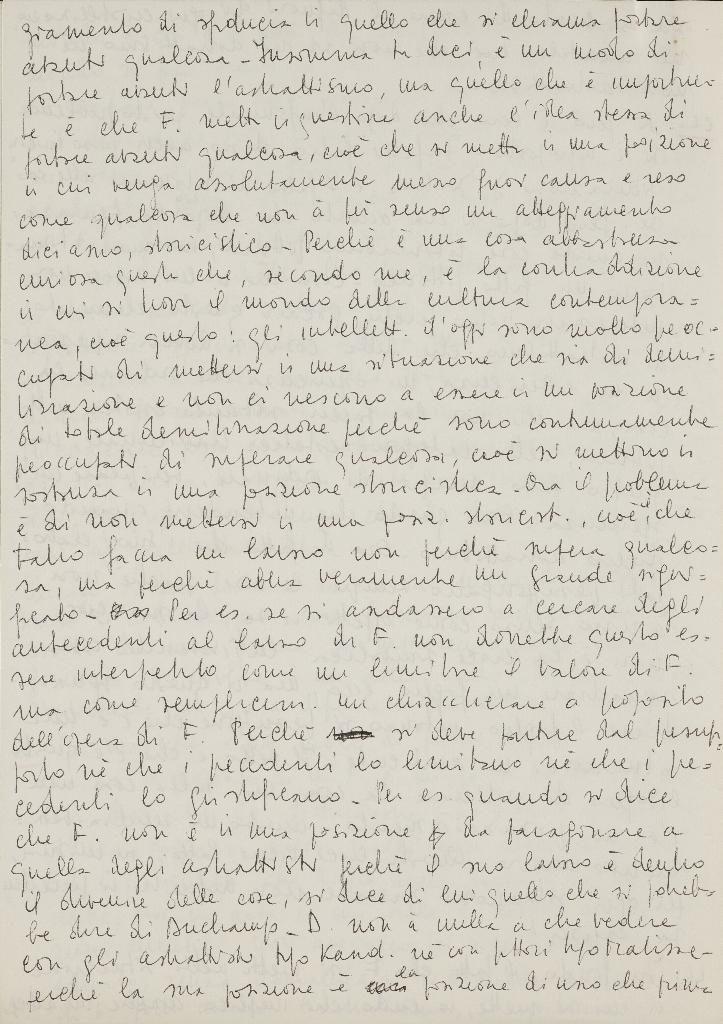 giamento di sfiducia in quello che si chiama portare
avanti qualcosa - Insomma tu dici, è un modo di
portare avanti l'astrattismo, ma quello che è importan-
te è che F. mette in questione anche l'idea stessa di
portare avanti qualcosa, cioè che si mette in una posizione
in cui venga assolutamente messo fuor causa e reso
come qualcosa che non à più senso un atteggiamento
diciamo, storicistico - Perché è una cosa abbastanza
curiosa questa che, secondo me, è la contraddizione
in cui si trova il mondo della cultura contempora=
nea, cioè questo: gli intellett. d'oggi sono molto preoc-
cupati di mettersi in una situazione che sia di demi=
tizzazione e non ci riescono a essere in un posizione
di totale demitizzazione perché sono continuamente
preoccupati di superare qualcosa, cioè si mettono in
sostanza in una posizione storicistica - Ora il problema
è di non mettersi in una posiz. storicist., cioè, che
Fabro faccia un lavoro non perché supera qualco=
sa, ma perché abbia veramente un grande signi=
ficato - Per es. se si andassero a cercare degli
antecedenti al lavoro di F. non dovrebbe questo es=
sere interpretato come un limitare il valore di F.
ma come semplicem. un chiaccherare a proposito
dell'opera di F. Perché si deve partire dal presup=
posto nè che i precedenti lo limitano nè che i pre=
cedenti lo giustificano - Per es. quando si dice
che F. non è in una posizione da paragonare a
quella degli astrattisti perché il suo lavoro è dentro
il divenire delle cose, si dice di lui quello che si potreb-
be dire di Duchamp - D. non à nulla a che vedere
con gli astrattisti tipo Kand. nè con pittori tipo Matisse -
perché la sua posizione è la posizione di uno che prima